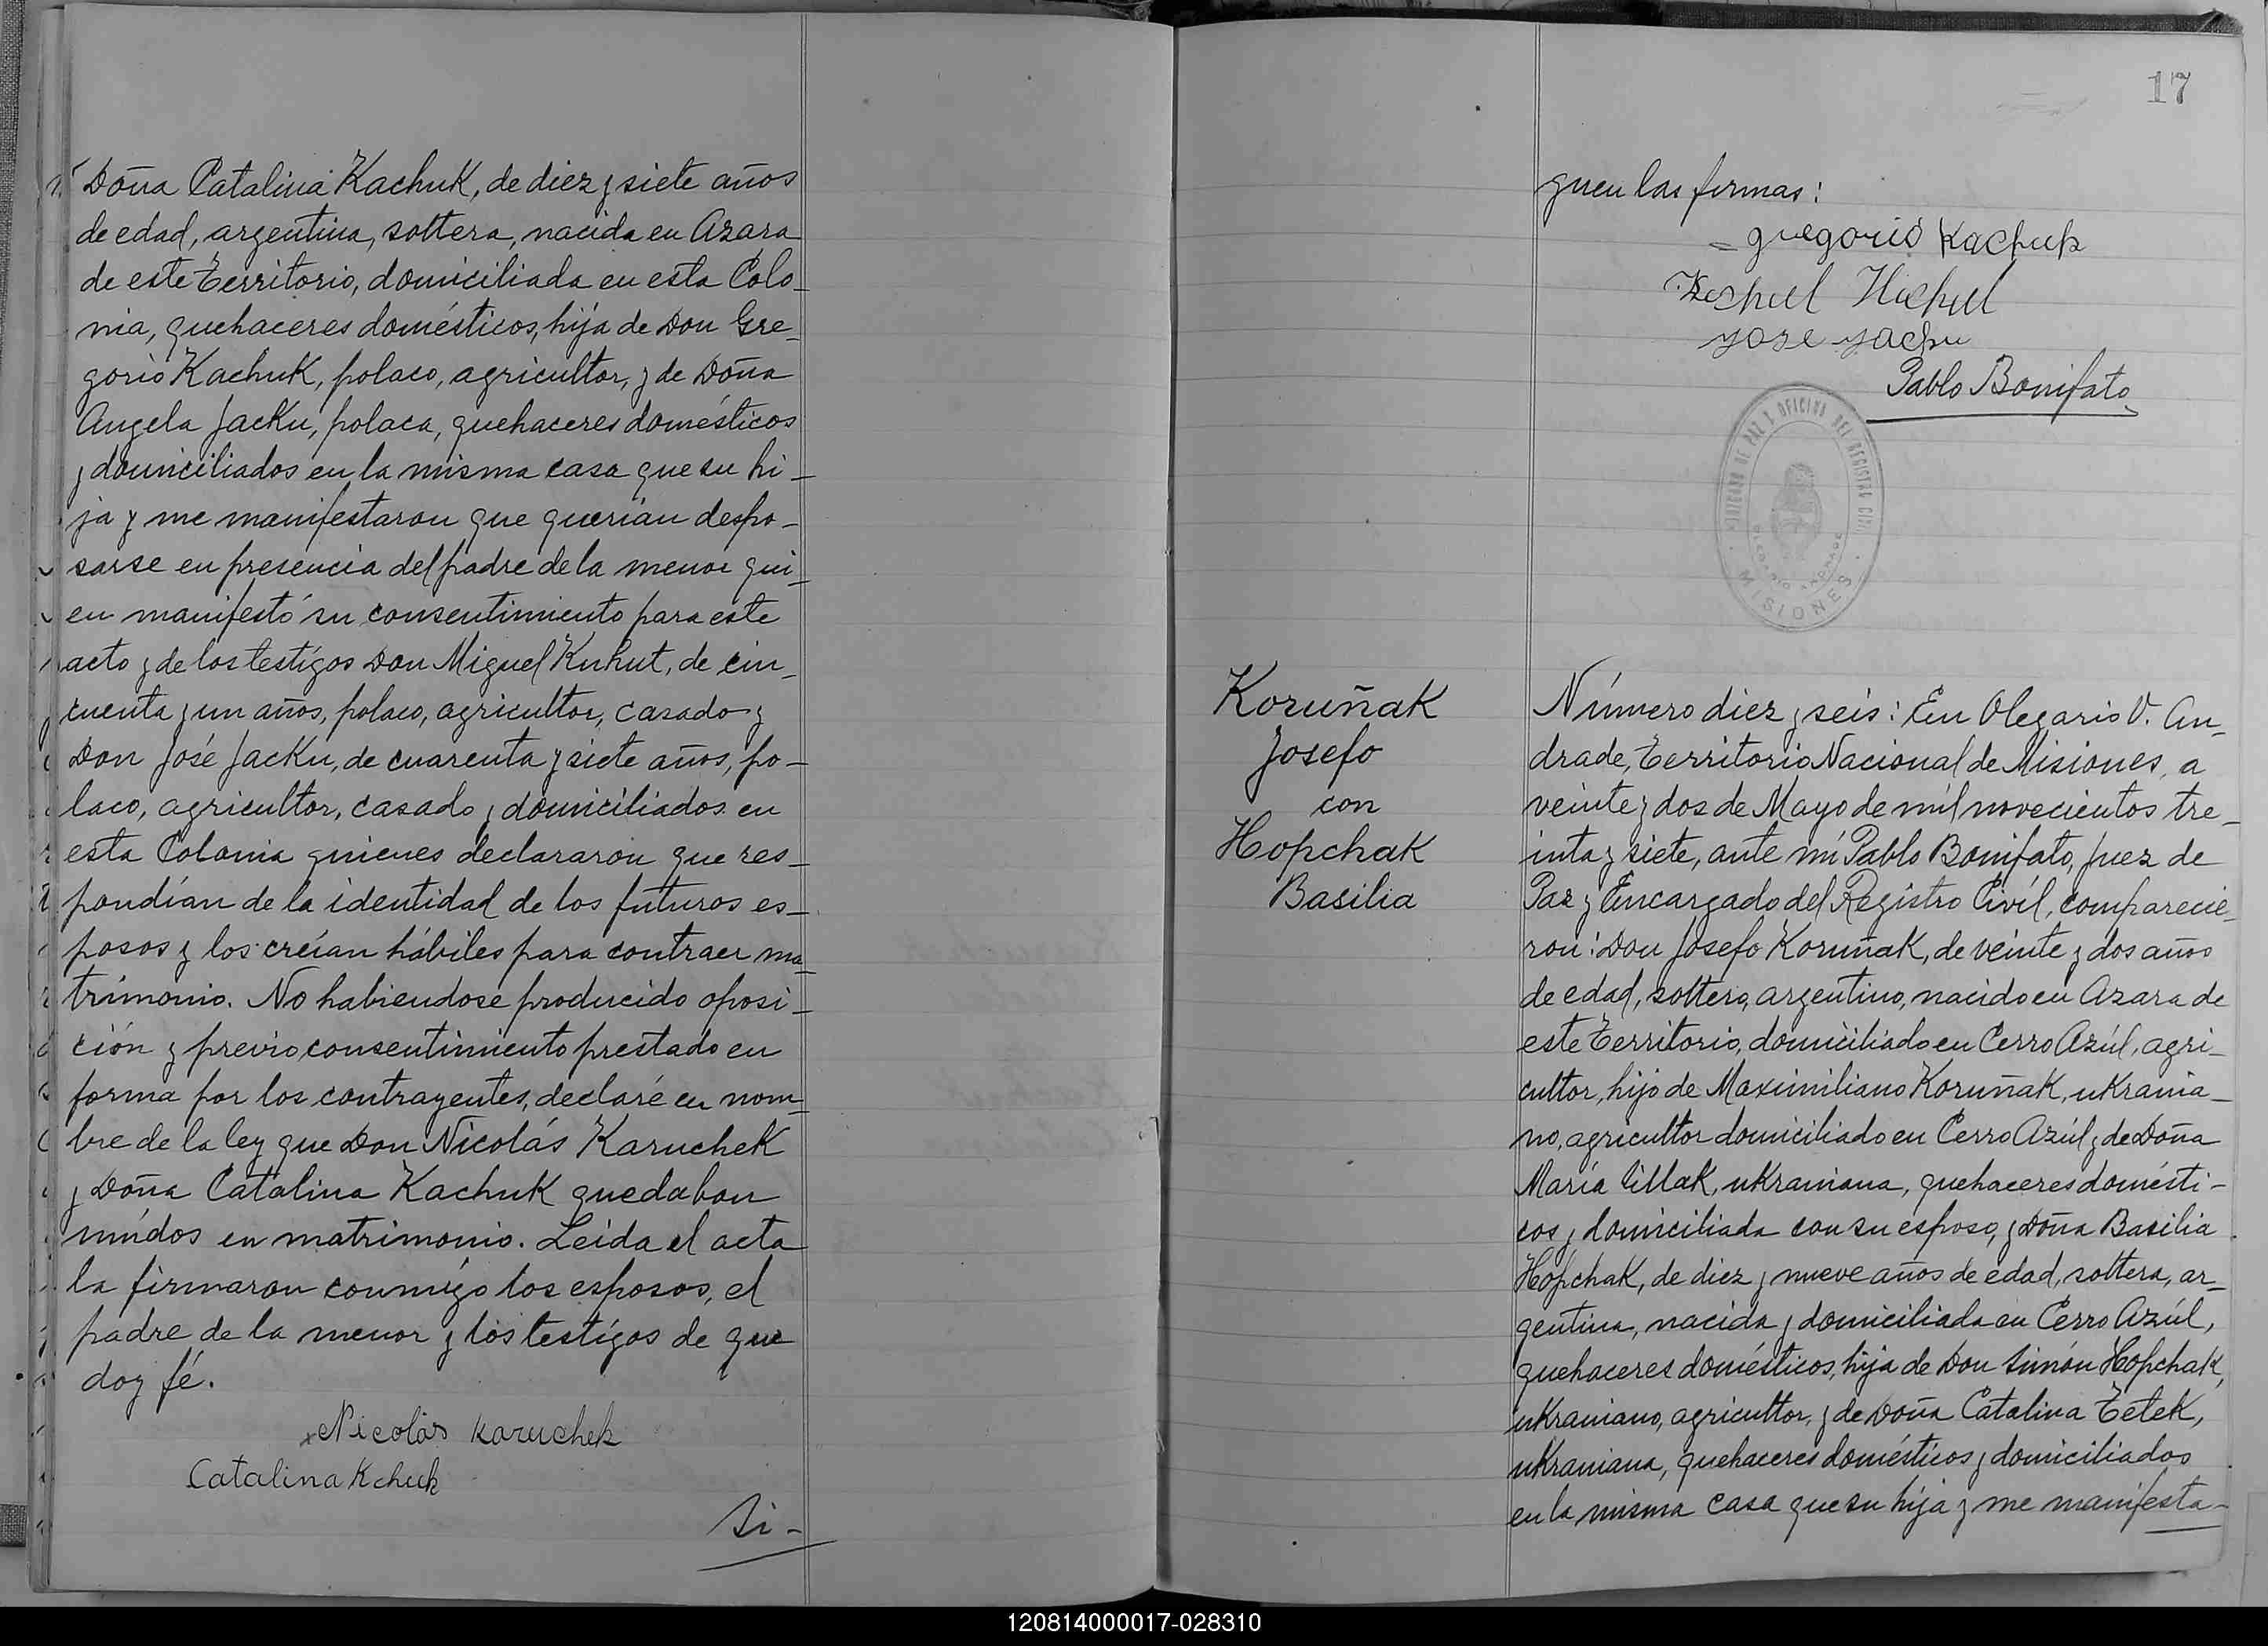 Doña Catalina Kachuk, de diez y siete años
de edad, argentina, soltera, nacida en Azara
de este Territorio, domiciliada en esta Colo-
nia, quehaceres domésticos, hija de Don Gre-
gorio Kachuk, polaco, agricultor, y de Doña
Angela Jacku, polaca, quehaceres domésticos
y domiciliados en la misma casa que su hi-
ja y me manifestaron que querían despo-
sarse en presencia del padre de la menor qui-
en manifestó su consentimiento para este
acto y de los testígos Don Miguel Kuhut, de cin-
cuenta y un años, polaco, agricultor, casado y
Don José Jacku, de cuarenta y siete años, po-
laco, agricultor, casado y domiciliados en
esta Colonia quienes declararon que res-
pondían de la identidad de los futuros es-
posos y los creían hábiles para contraer ma-
trimonio. No habiendose producido oposi-
ción y previo consentimiento prestado en
forma por los contrayentes, declaré en nom-
bre de la ley que Don Nicolás Karuchek
y Doña Catalina Kachuk quedaban
unídos en matrimonio. Leída el acta
la firmaron conmígo los esposos, el
padre de la menor y los testígos de que
doy fé.
Nicolás Karuchek
Catalina Kchuk
Si-
17
guen las firmas:
= gregorio Kachuk
Hichul
yose yachu
Pablo Bonifato
JUZGADO DE PAZ Y OFICINA DEL REGISTRO CIVIL
MISIONES
Koruñak
Josefo
con
Hopchak
Basilia
Número diez y seis: En Olegario V. An-
drade, Territorio Nacional de Misiones, a
veinte y dos de Mayo de mil novecientos tre-
inta y siete, ante mí Pablo Bonifato, Juez de
Paz y Encargado del Registro Civíl, comparecie-
ron: Don Josefo Koruñak, de veinte y dos años
de edad, soltero, argentino, nacido en Azara de
este Territorio, domiciliado en Cerro Azúl, agri-
cultor, hijo de Maximiliano Koruñak, ukrania-
no, agricultor domiciliado en Cerro Azúl y de Doña
María ukraniana, quehaceres domésti-
cos y domiciliada con su esposo, y Doña Basilia
Hopchak, de diez y nueve años de edad, soltera, ar-
gentina, nacida y domiciliada en Cerro Azúl,
quehaceres domésticos, hija de Don Simón Hopchak,
ukraniano, agricultor, y de Doña Catalina Tetek,
ukraniana, quehaceres domésticos y domiciliados
en la misma casa que su hija y me manifesta-
120814000017-028310